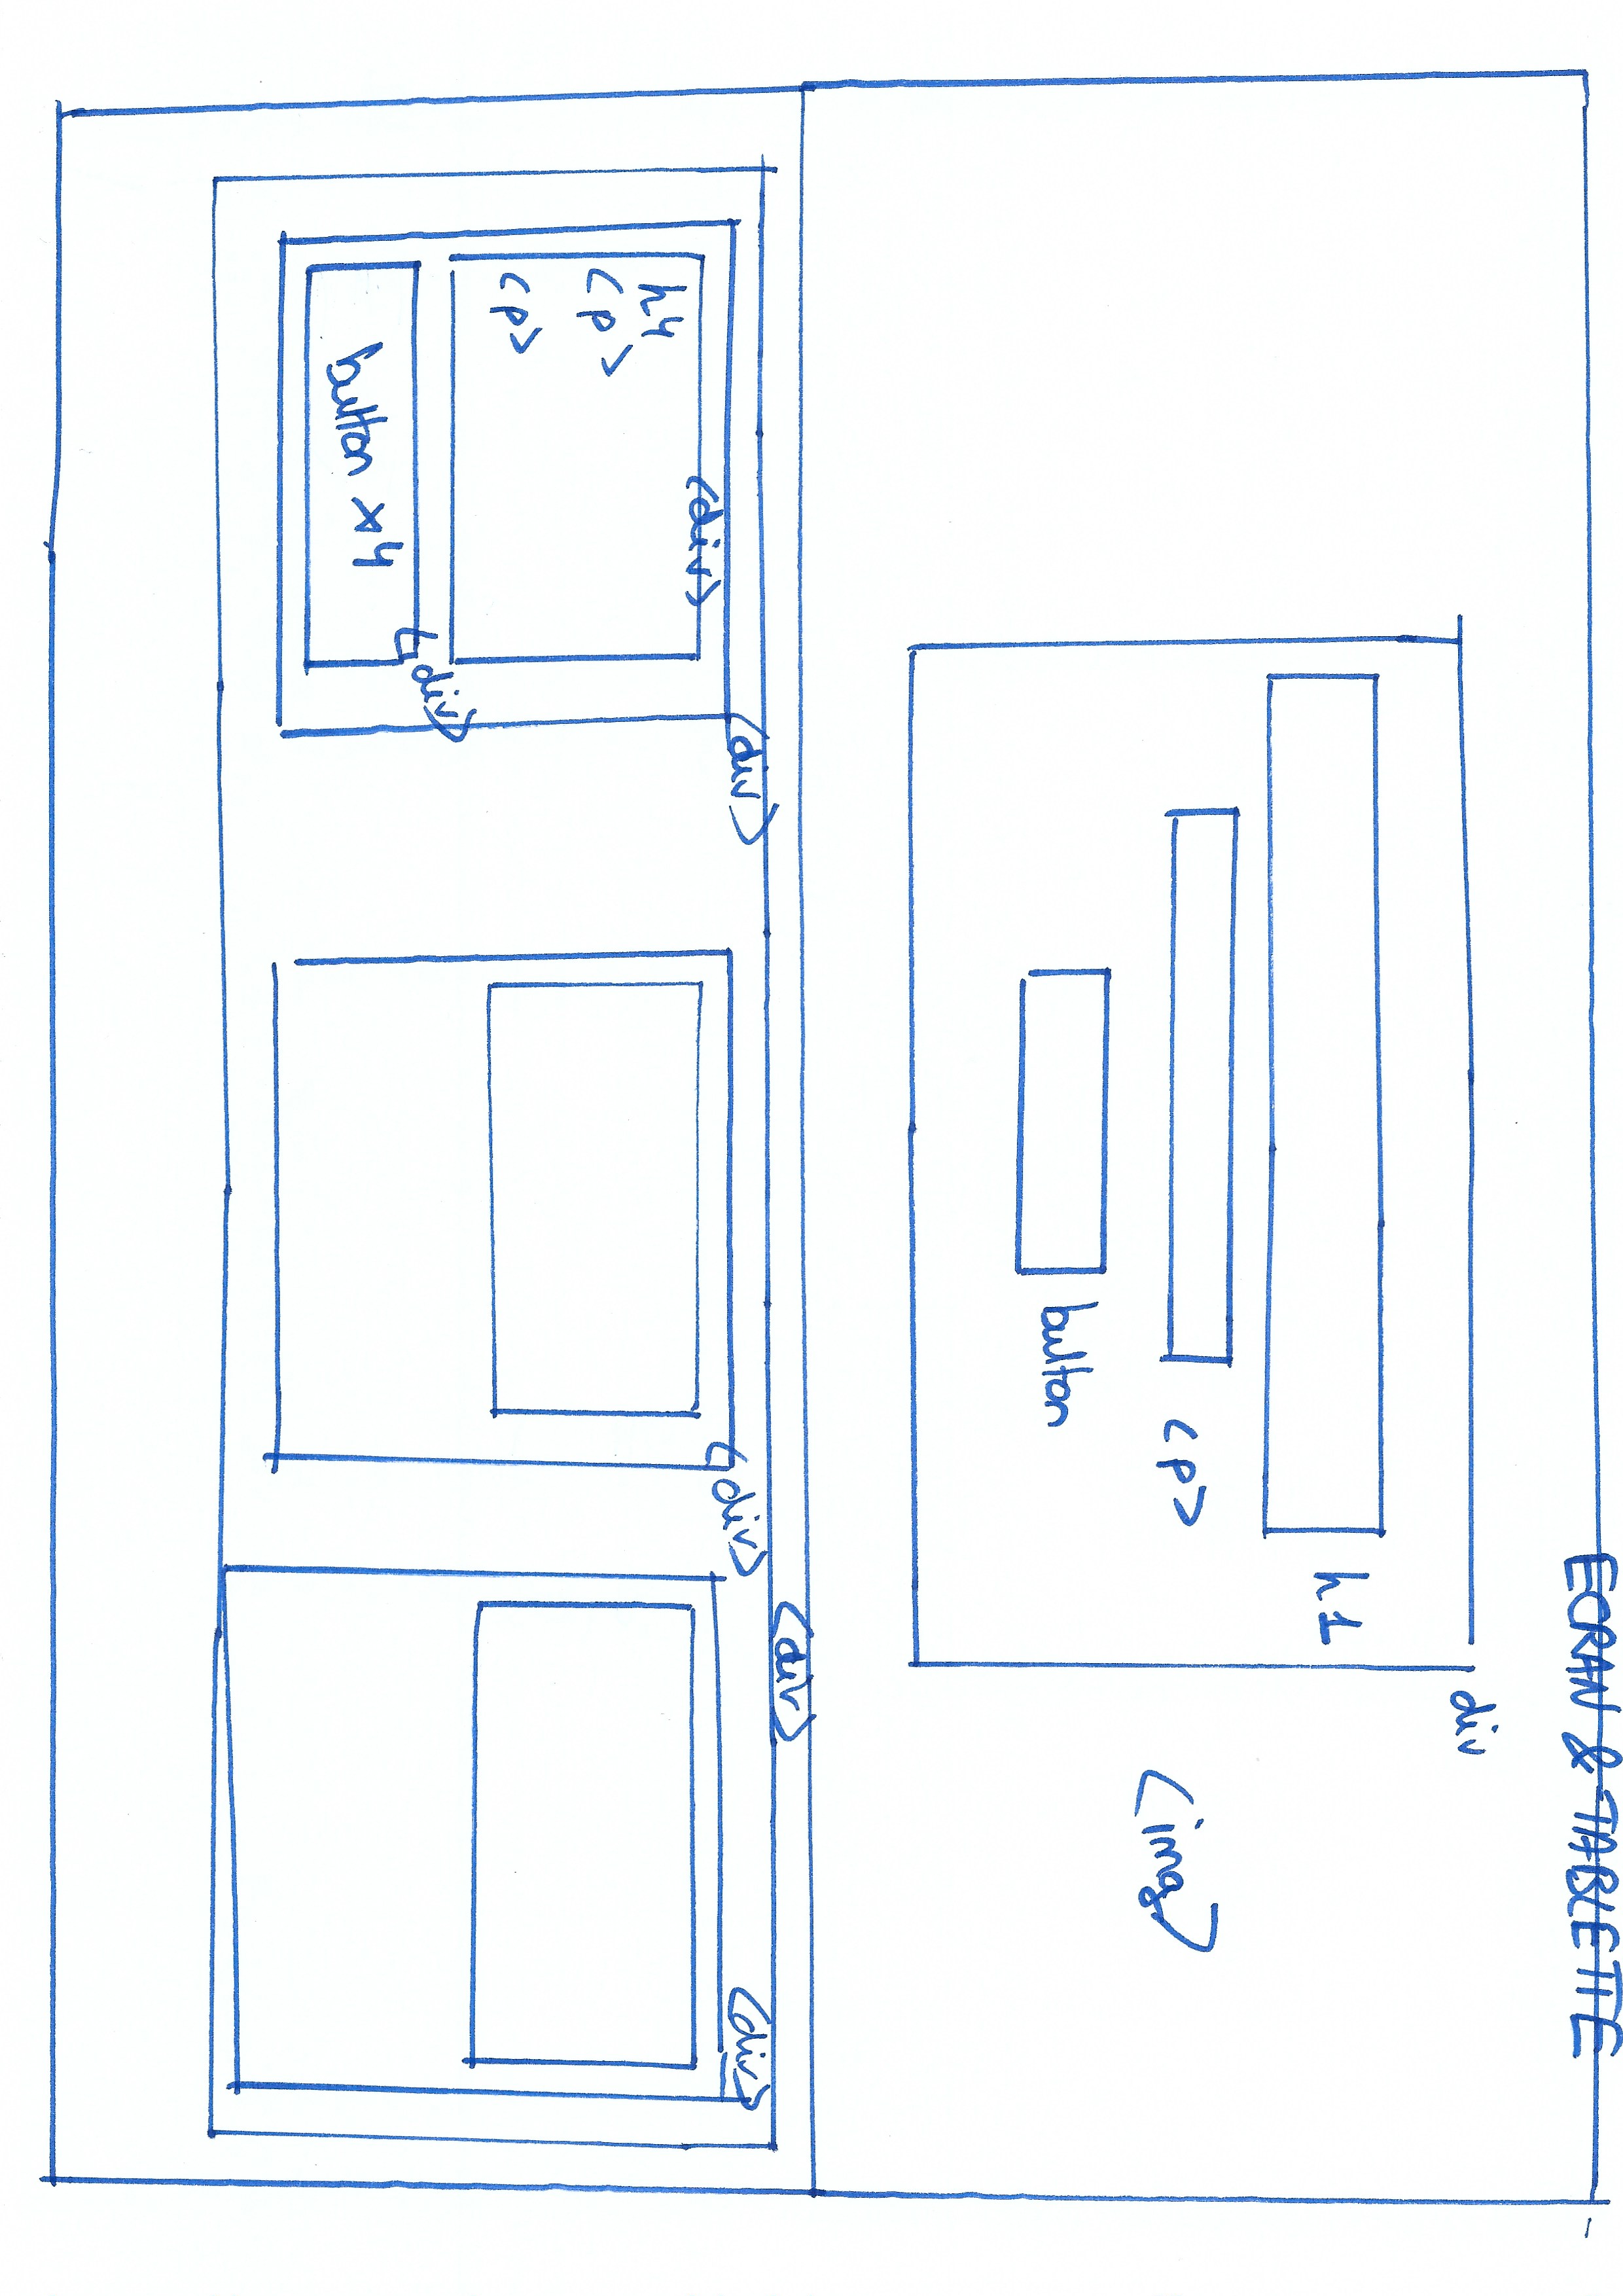 ECRAN & TABLETTE
div
h1
<p>
button
<img>
<div>
<div>
<div>
h4
<p>
<p>
<div>
button x4
<div>
<div>